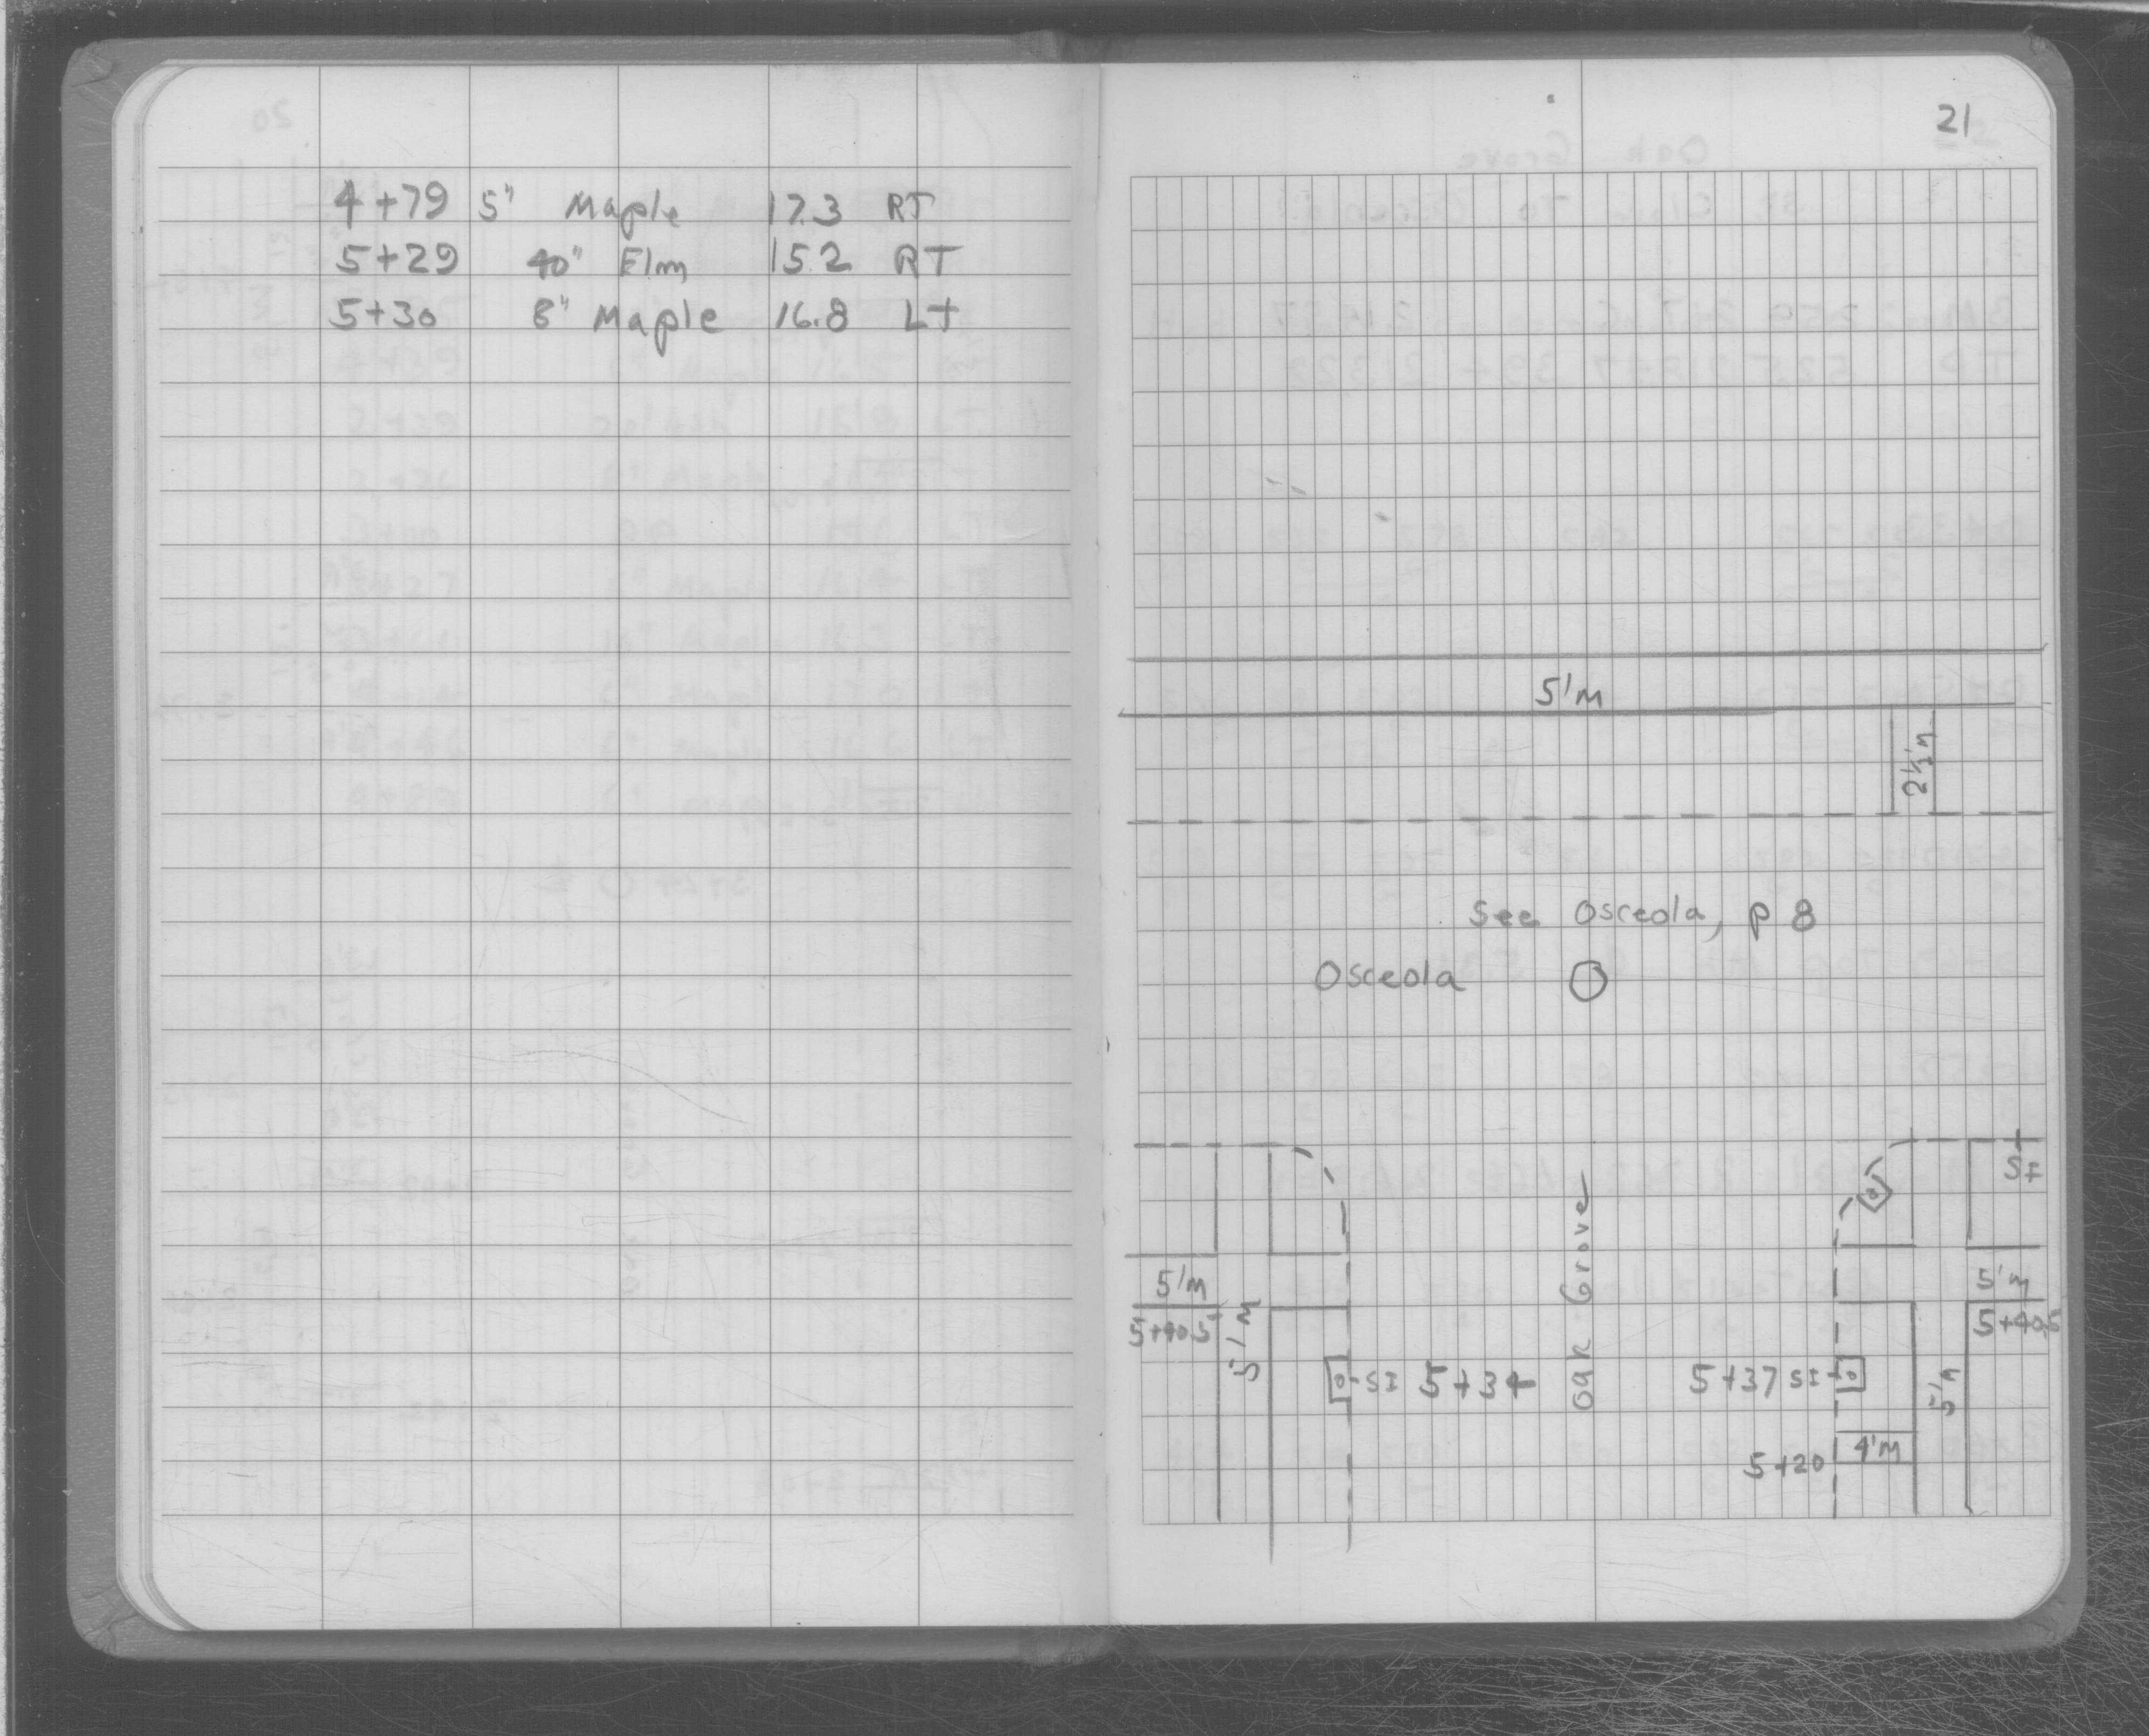 4+79 5" Maple 17.3 RT
5+29 40" Elm 15.2 RT
5+30 8" Maple 16.8 LT
21
5'M
2½'M
See Osceola, p 8
Osceola
SI
5'M
5'M
5+40.5
5+40.5
5'M
Oak Grove
SI 5+34
5+37 SI
5'M
5+20
4'M